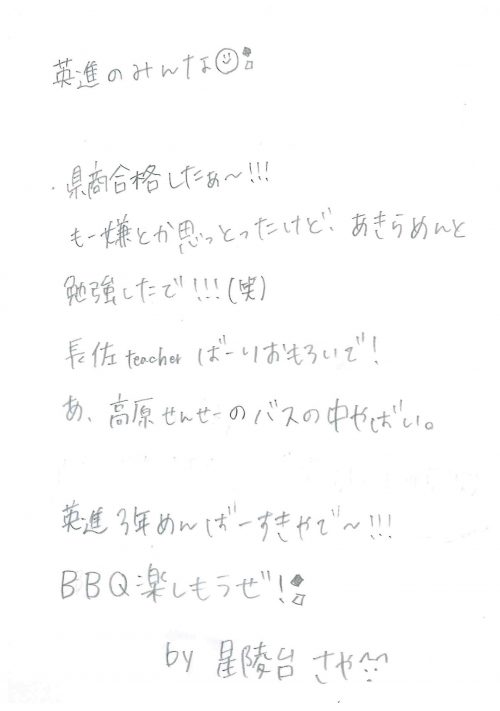 英進のみんな☺
・県商合格したぁ〜!!!
もー嫌とか思っとったけど、あきらめんと
勉強したで!!!(笑)
長佐teacherばーりおもろいで!
あ、高原せんせーのバスの中やばい。
英進3年めんばーすきやで〜!!!
BBQ楽しもうぜ!
by 星陵台 さや^^